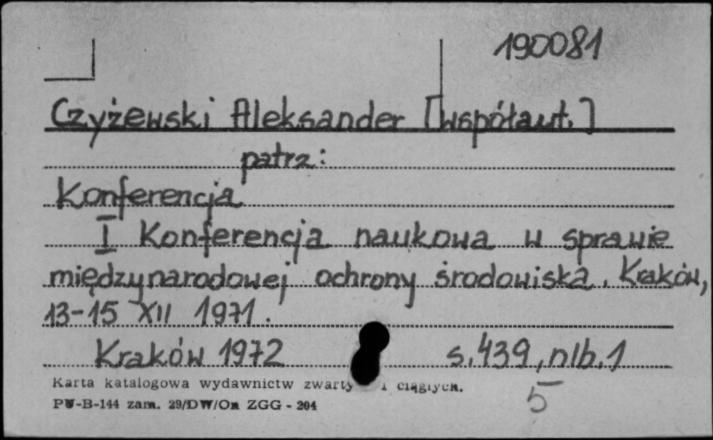 190081
Czyżewski Aleksander [współaut.]
patrz:
Konferencja
I Konferencja naukowa w sprawie
międzynarodowej ochrony środowiska. Kraków,
13-15 XII 1971.
Kraków 1972 s. 439, nlb. 1
Karta katalogowa wydawnictw zwarty i ciągłych.
PW-B-144 zam. 29/DW/Om ZGG - 204
5